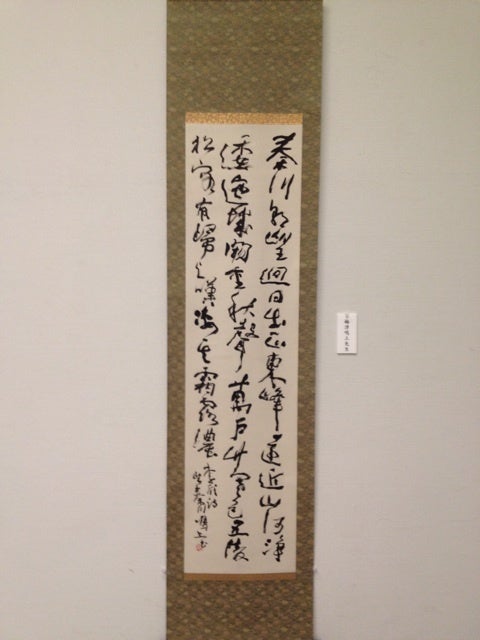 秦川朝望迥日出正東峰遠近山河淨
逶迤城闕重秋聲萬戶竹寒色五陵
松客有歸歟嘆淒其霜露濃
李頎詩
望秦川 鳴上書